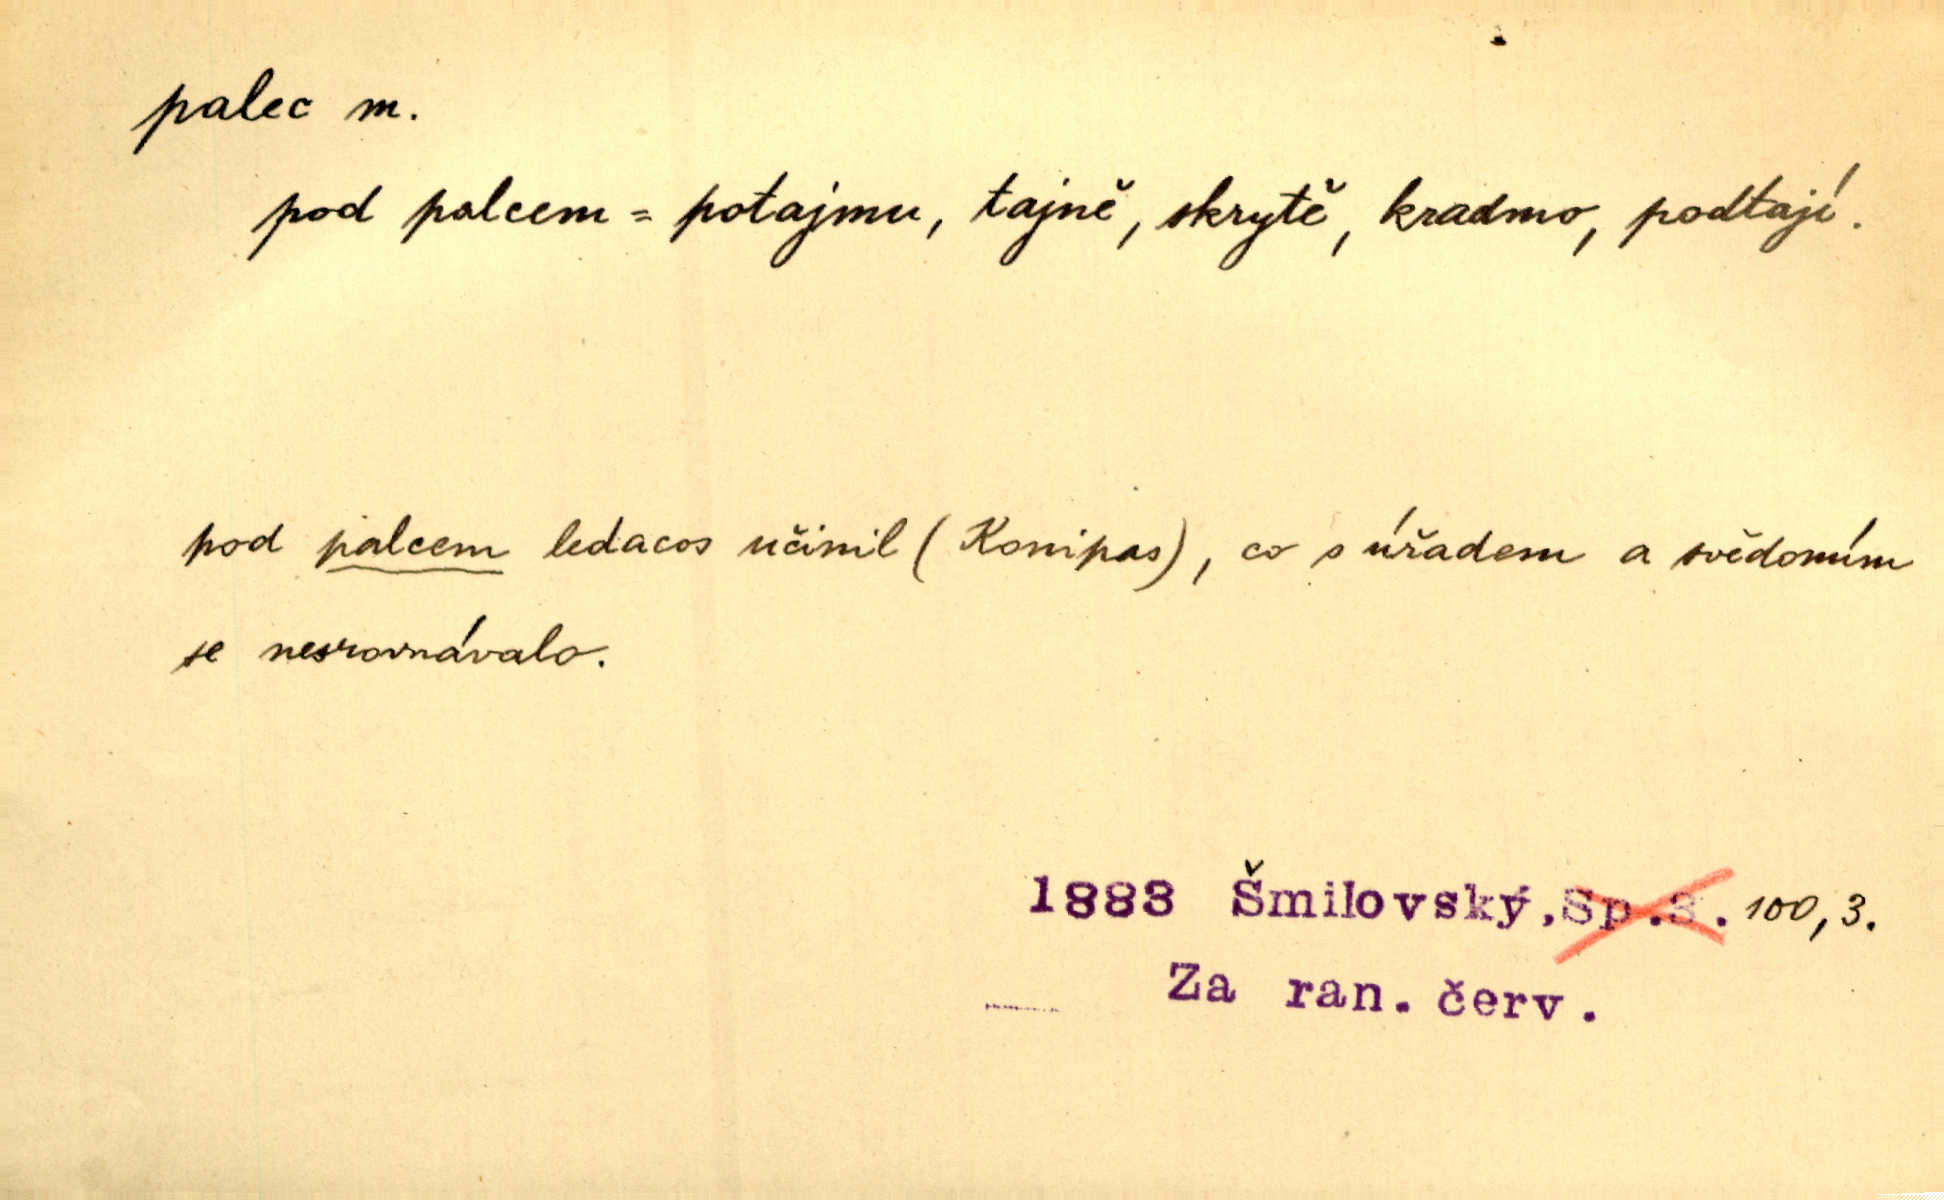 palec m.
pod palcem = potajmu, tajně, skrytě, kradmo, podtají.
pod palcem ledacos učinil (Konipas), co s úřadem a svědomím
se nesrovnávalo.
1883 Šmilovský, Sp.3. 100, 3.
Za ran. červ.